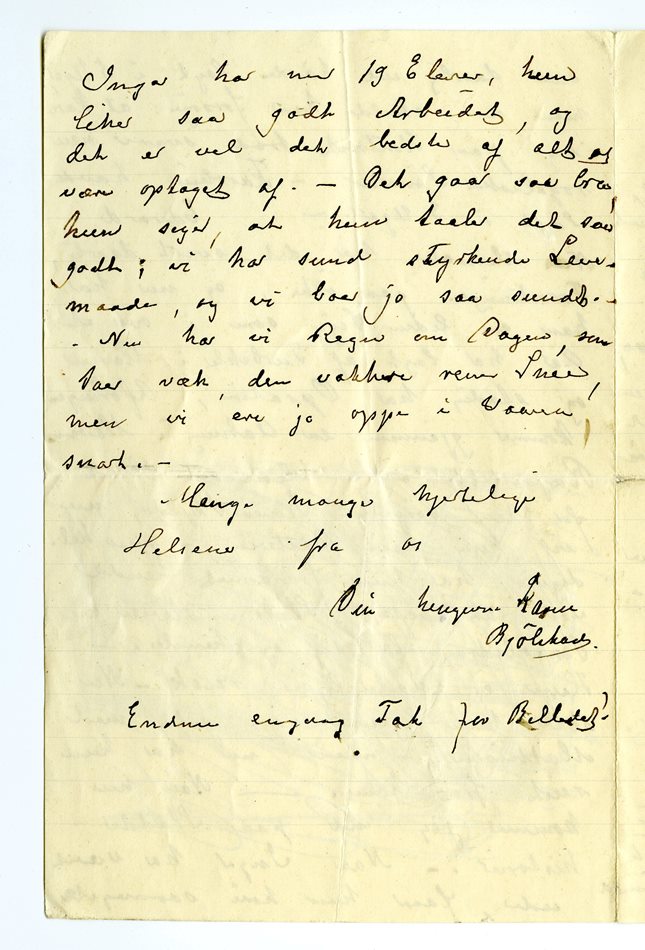 Inga har nu 19 Elever, hun
liker saa godt Arbeidet, og
det er vel det bedste af alt at
være optaget af. – Det gaar saa bra,
hun siger, at hun taaler det saa
godt; vi har sund styrkende Leve-
maade, og vi boer jo saa sundt. -
- Nu har vi Regn om Dagen, som
taer væk den vakkre rene Snee,
men vi ere jo oppe i Vaaren
snart. –
- Mange mange hjertelige
Hilsener fra os
Din hengivne Karen
Bjölstad.
Endnu engang Tak for Billedet!